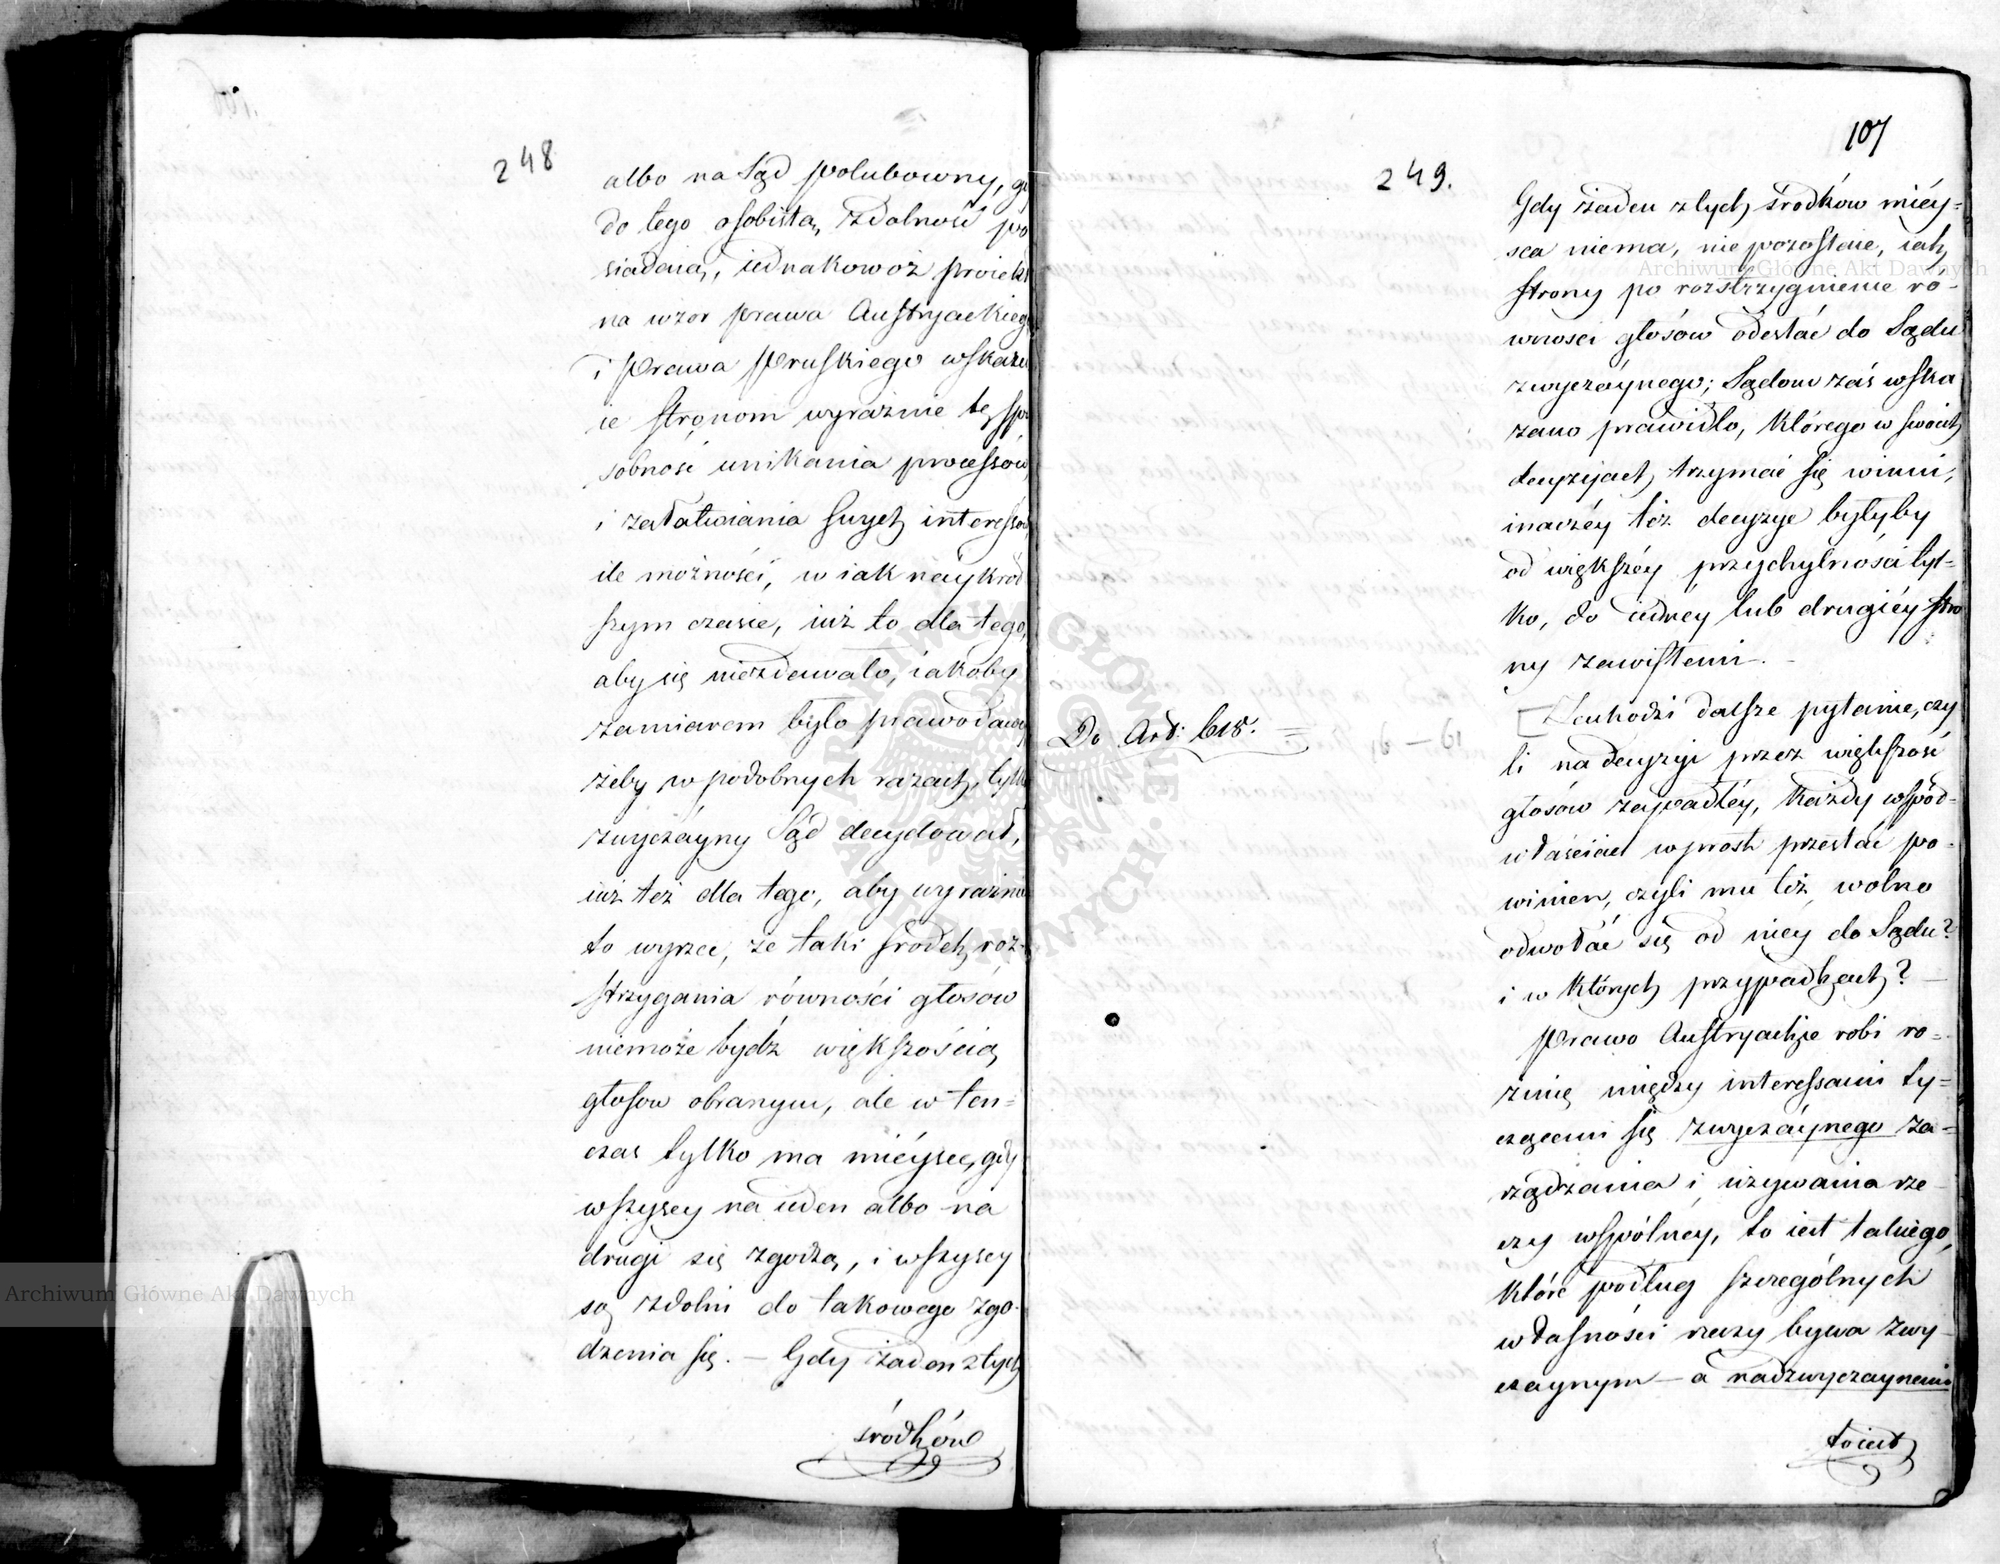 248
albo na Sąd polubowny, gdy
do tego osobistą zdolność po
siadaią, iednakowoż proiekt
na wzor prawa Austryackiego
i Prawa Pruskiego wskazu
ie stronom wyraźnie tę spo
sobność unikania processów,
i załatwiania swych interessów
ile możności, w iak naykrót
szym czasie, iuż to dla tego,
aby się niezdawało, iakoby
zamiarem było prawodawcy
żeby w podobnych razach, tylko
zwyczayny Sąd decydował,
iuż też dla tego, aby wyraźnie
to wyrzec, że taki środek roz-
strzygania równości głosów
niemoże bydź większością
głosow obranym, ale w ten=
czas tylko ma mieysce, gdy
wszyscy na ieden albo na
drugi się zgodzą, i wszyscy
są zdolni do takowego zgo-
dzenia się. — Gdy żaden z tych
środków
107
249.
Gdy żaden z tych środków miéy=
sca niema, nie pozostaie, iak
strony po rozstrzygnienie ró-
wności głosów odesłać do Sądu
zwyczaynego; Sądom zaś wska
zano prawidło, którego w swoich
decyzyach trzymać się winni,
inaczéy też decyzye byłyby
od większéy przychylności tyl=
ko, do iednéy lub drugiéy stro
ny zawisłemi. -
Do Art: 615.
Zachodzi dalsze pytanie, czy
li na decyzyi przez większość
głosów zapadłéy, każdy współ=
właściciel wprost przestać po-
winien, czyli mu też wolno
odwołać się od niéy do Sądu?
i w których przypadkach? —
Prawo Austryackie robi ró=
żnicę między interessami ty=
czącemi się zwyczaynego za=
rządzania i używania rze
czy wspólnéy, to iest takiego,
które podług szczególnych
własności rzeczy bywa zwy-
czaynym — a nadzwyczaynemi
to iest
Archiwum Główne Akt Dawnych
Archiwum Główne Akt Dawnych
ARCHIWUM GŁÓWNE AKT DAWNYCH